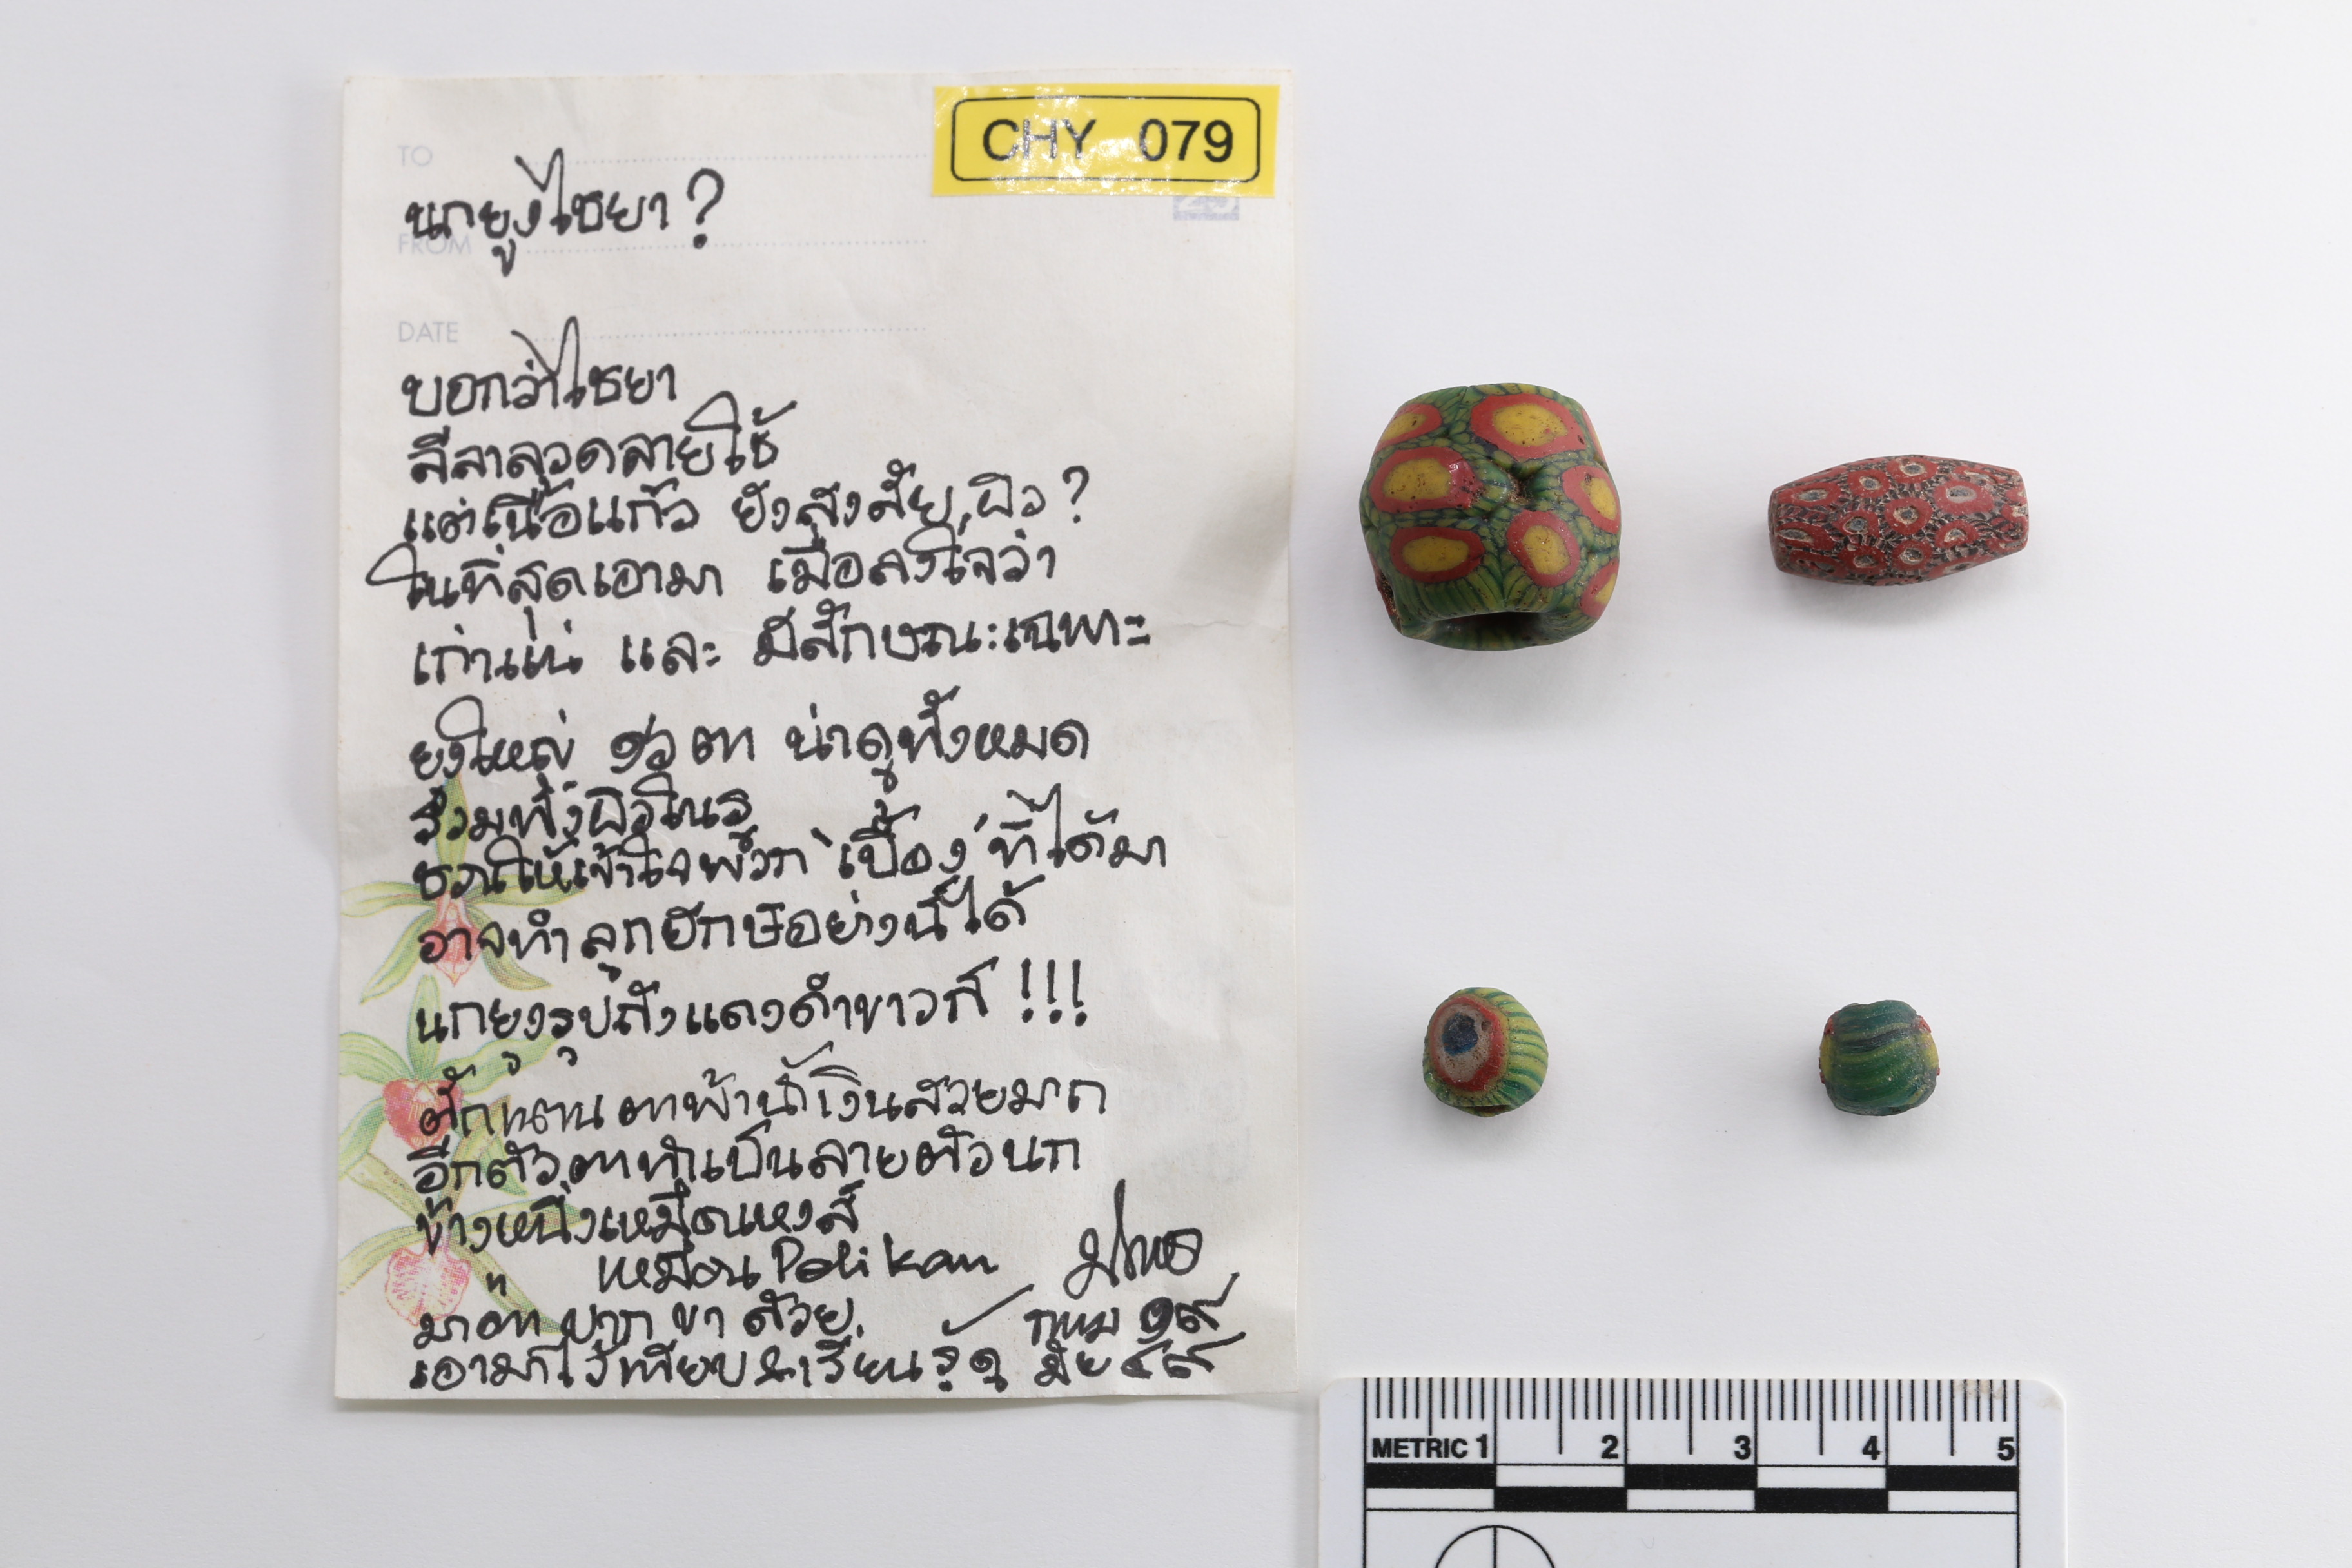 CHY 079
TO
นกยูงไชยา?
FROM
DATE
บอกว่าไชยา
ลีลาลวดลายใช้
แต่เนื้อแก้ว ยังสงสัย, ผิว?
ในที่สุดเอามา เมื่อลงใจว่า
เก่าแน่ และ มีลักษณะเฉพาะ
ยูงใหญ่ ๑๖ ตา น่าดูทั้งหมด
รวมทั้งผิวในรู
ชวนให้เข้าใจพวก "เบื้อง" ที่ได้มา
อาจทำลูกยักษ์อย่างนี้ได้
นกยูงรูปถังแดงดำขาวก็ !!!
ตั๊กแตน ตาฟ้าน้ำเงินสวยมาก
อีกตัว ตาทำเป็นลายตัวนก
ข้างหนึ่งเหมือนหงส์
เหมือน Pelikan
มีตา ปาก ขา ด้วย.
เอามาไว้เทียบ & เรียนรู้
กทม ๑๙
มิย ๔๙
METRIC 1 2 3 4 5